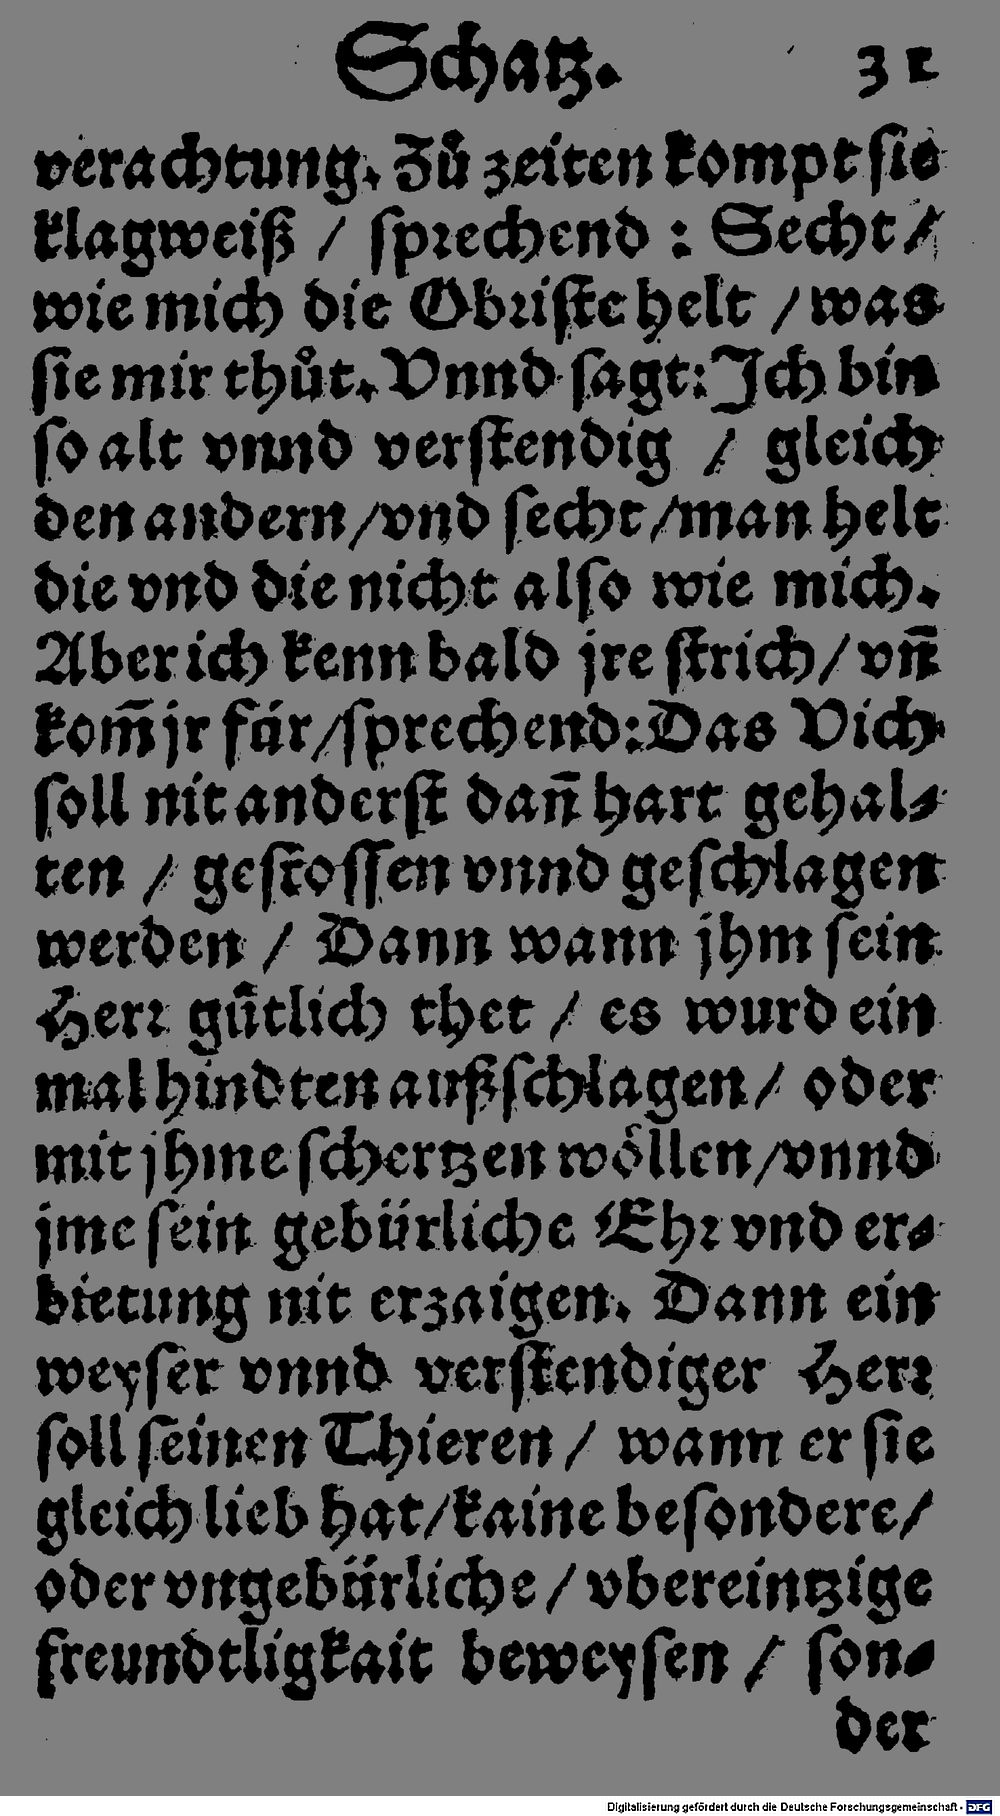 Schatz. 31
verachtung. Zů zeiten kompt sie
klagweiß / sprechend : Secht /
wie mich die Obriste helt / was
sie mir thůt. Vnnd sagt: Ich bin
so alt vnnd verstendig / gleich
den andern / vnd secht / man helt
die vnd die nicht also wie mich.
Aber ich kenn bald jre strich / vñ
kom̃ jr für / sprechend: Das Vich
soll nit anderst dañ hart gehal-
ten / gestossen vnnd geschlagen
werden / Dann wann jhm sein
Herr gůtlich thet / es wurd ein
mal hindten außschlagen / oder
mit jhme schertzen wöllen / vnnd
jme sein gebürliche Ehr vnd er-
bietung nit erzaigen. Dann ein
weyser vnnd verstendiger Herr
soll seinen Thieren / wann er sie
gleich lieb hat / kaine besondere /
oder vngebürliche / vbereintzige
freundtligkait beweysen / son-
der
Digitalisierung gefördert durch die Deutsche Forschungsgemeinschaft - DFG